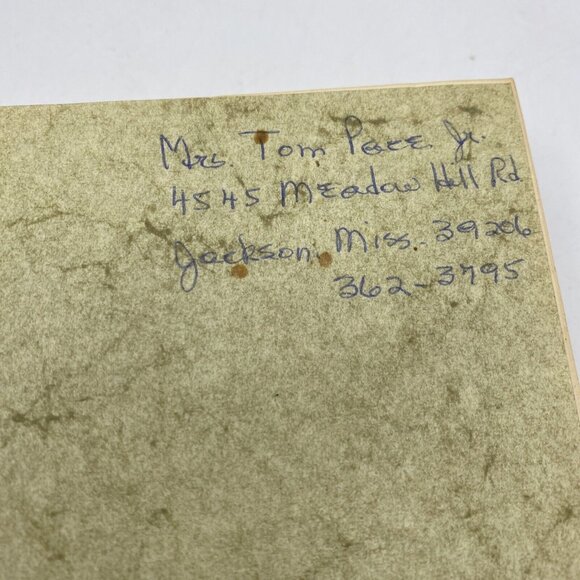 Mrs. Tom Pace. Jr.
4545 Meadow Hill Rd
Jackson, Miss. 39206
362-3795